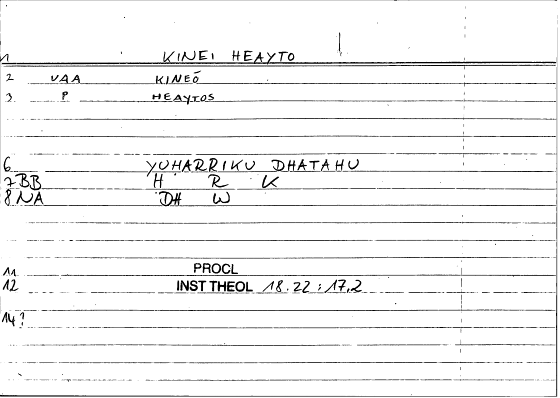 1 KINEI HEAYTO
2 VAA KINEŌ
3 P HEAYTOS
6 YUHARRIKU DHATAHU
7 BB H R K
8 NA DH W
11 PROCL
12 INST THEOL 18.22 : 17,2
14?